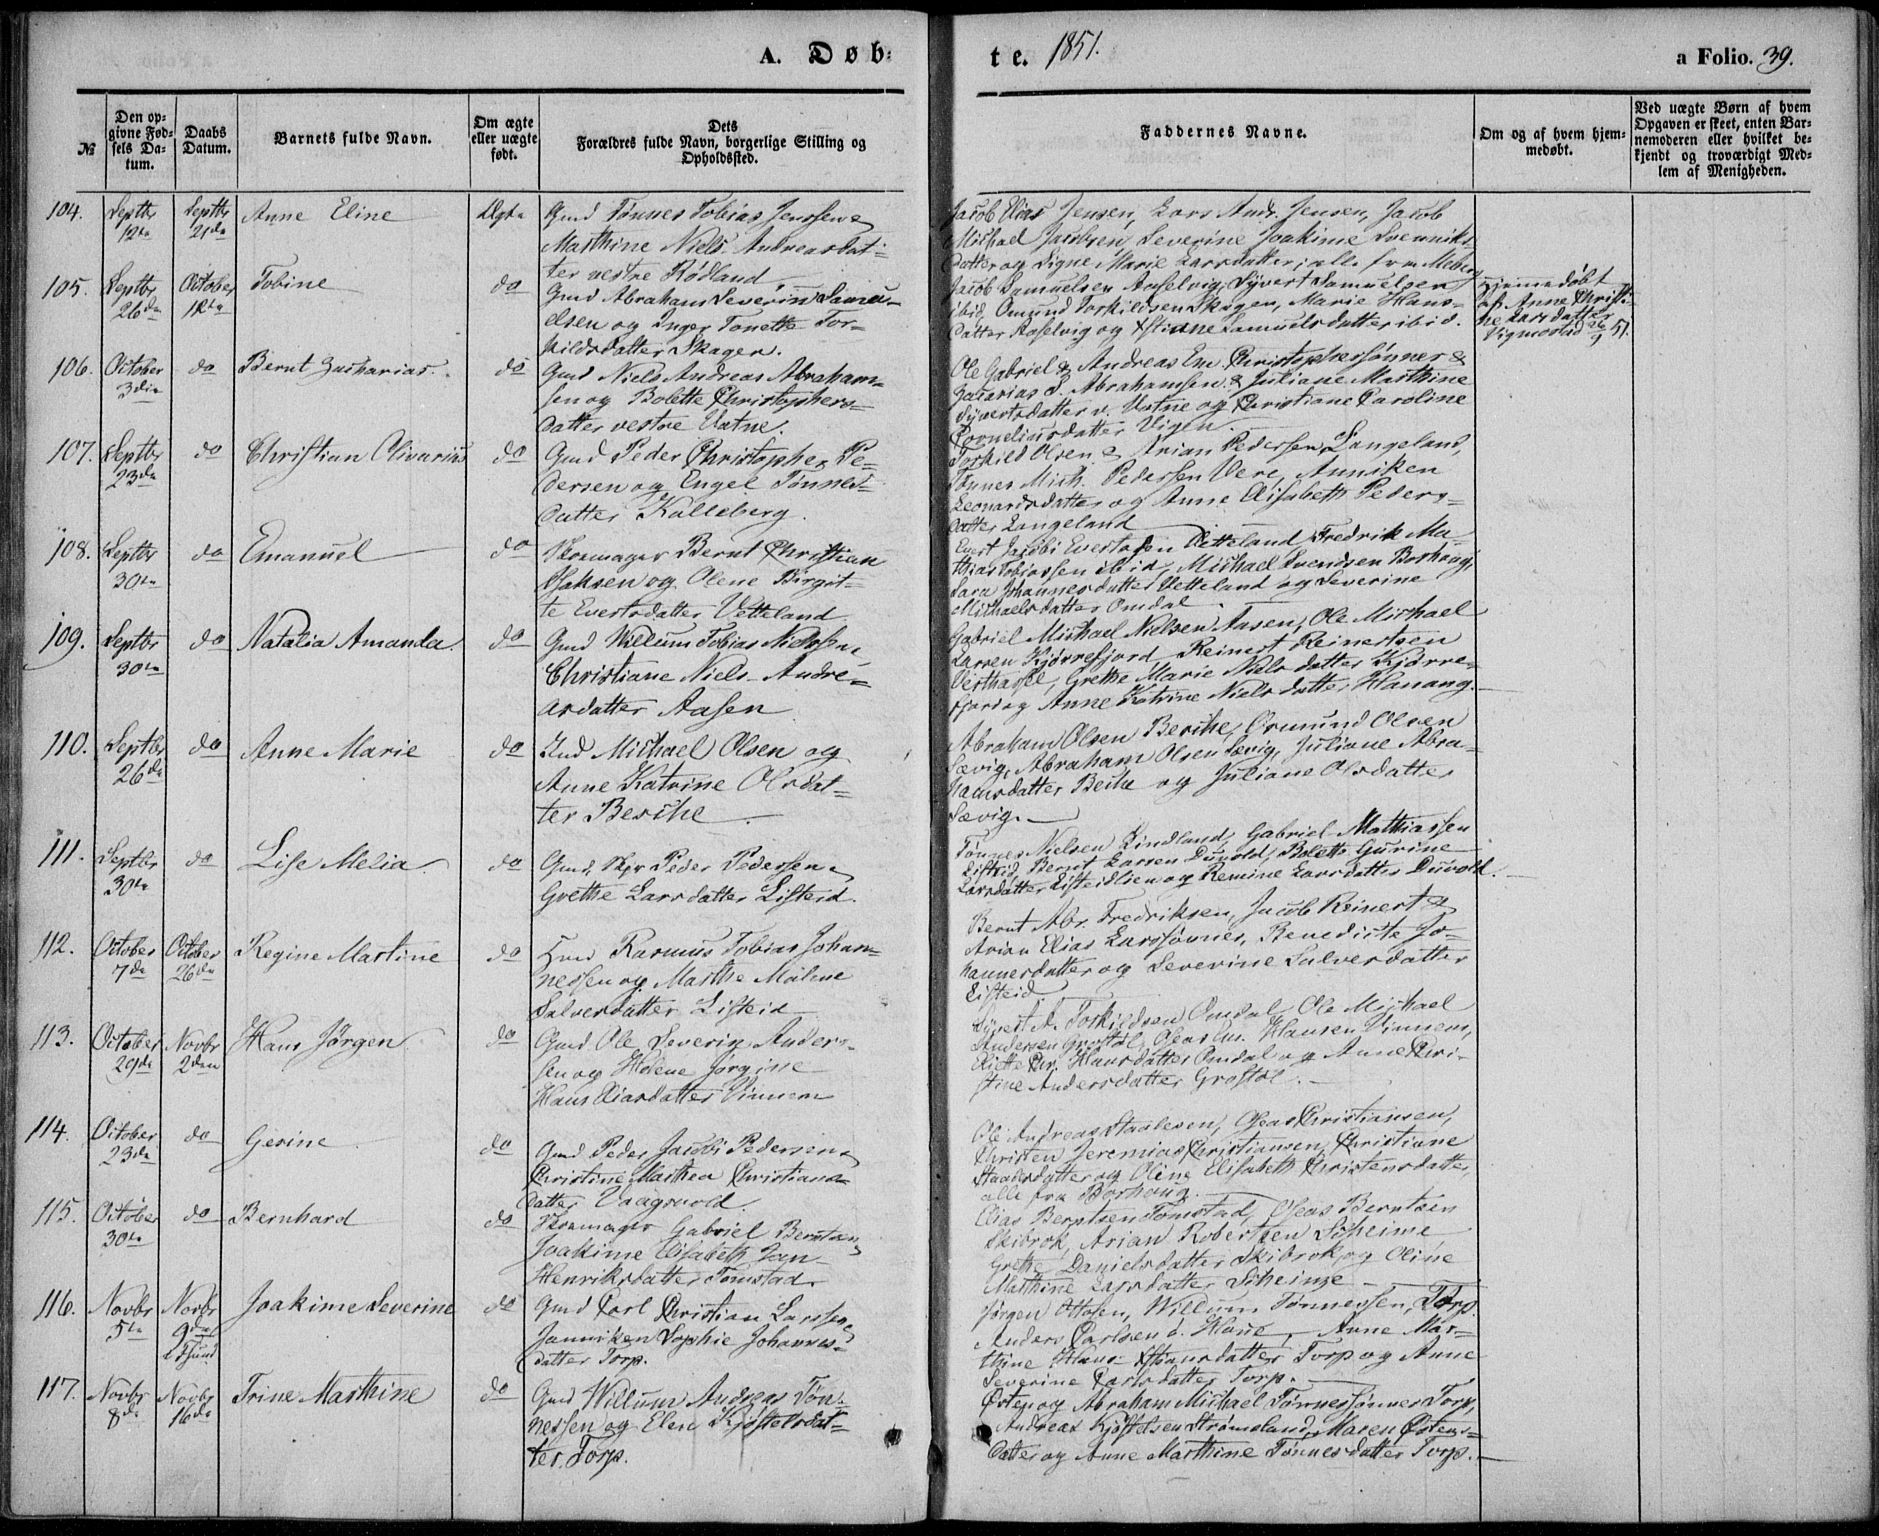 A. Døb-
te. 1851.
a Folio. 39.
№
Den op-
givne Fød-
sels Da-
tum.
Daabs
Datum.
Barnets fulde Navn.
Om ægte
eller uægte
født.
Dets
Forældres fulde Navn, borgerlige Stilling og
Opholdssted.
Faddernes Navne.
Om og af hvem hjem-
medøbt.
Ved uægte Børn af hvem
Opgaven er skeet, enten Bar-
nemoderen eller hvilket be-
kjendt og troværdigt Med-
lem af Menigheden.
104. Septbr 12te Septbr 21de Anne Eline Ægte
Gmd Tønnes Tobias Jenssen &
Marthine Niels Andreasdat-
ter vestre Rødland
Jacob Elias Jensen, Lars Andr. Jensen, Jacob
Michael Jacobsen, Severine Joakime Svennings-
datter og Signe Marie Larsdatter, alle fra Meberg
105. Septbr 26de October 12te Tobine do
Gmd Abraham Severin Samu-
elsen og Inger Tonette Tor-
kildsdatter Skagen.
Jacob Samuelsen Aaselvig, Syvert Samuelsen
ibid, Omund Torkildsen Skagen, Marie Hans-
datter Aaselvig og Xstiane Samuelsdatter ibid.
Hjemmedøbt
af Anne Christi-
ne Larsdatter
Vigmostad 26/9 51.
106. October 3die do Bernt Zacharias do
Gmd Niels Andreas Abraham-
sen og Bolette Christophers-
datter vestre Vatne.
Ole Gabriel & Andreas Em. Christophersønner &
Zacarias S. Abrahamsen & Juliane Marthine
Syvertsdatter v. Vatne og Christiane Caroline
Corneliusdatter Vigen
107. Septbr 23de do Christian Olivarius do
Gmd Peder Christopher Pe-
dersen og Engel Tønnes-
datter Kalleberg.
Torkild Olsen & Arian Pedersen Langeland,
Tønnes Mich. Pederssen Vere, Anniken
Leonardsdatter og Anne Elisabeth Peders-
datter Langeland
108. Septbr 30te do Emanuel do
Skomager Bernt Christian
Isaksen og Olene Birgit-
te Evertsdatter Vetteland
Evert Jacobi Evertssen Vetteland Fredrik Ma-
thias Tobiassen ibid, Michael Svendsen Borhaug,
Sara Johannesdatter Vetteland og Severine
Michaelsdatter Omdal
109. Septbr 30te do Natalia Amanda do
Gmd Willum Tobias Nielssen &
Christiane Niels Andre-
asdatter Aasen
Gabriel Michael Nielsen Aasen, Ole Michael
Larsen Kjørrefjord Reinert Reinertsen
Vesthasel, Grethe Marie Nielsdatter Kjørre-
fjord og Anne Katrine Nielsdatter Hanang.
110. Septbr 26de do Anne Marie do
Ind Michael Olsen og
Anne Katrine Olsdat-
ter Berthe
Abraham Olsen Berthe, Omund Olsen
Sævig, Abraham Olsen Sævig, Juliane Abra-
hamsdatter Berthe og Juliane Olsdatter
Sævig.
111. Septbr 30te do Lise Melia do
Gmd, Skpr Peder Pedersen &
Grethe Larsdatter Listeid.
Tønnes Nielsen Rindland, Gabriel Mathiassen
Listeid, Bernt Larsen Duvold, Bolette Gurine
Larsdatter Listeidlien og Remine Larsdatter Duvold.
112. October 7de October 26de Regine Martine do
Hmd Rasmus Tobias Johan-
nessen og Marthe Malene
Salvesdatter Listeid
Bernt Abr. Fredriksen, Jacob Reinert &
Arian Elias Larssønner, Benedicte Jo-
hannesdatter og Severine Salvesdatter
Listeid
113. October 29de Novbr 2den Hans Jørgen do
Gmd Ole Severin Anders-
sen og Helene Jørgine
Hans Eliasdatter Vinnem
Syvert A. Torkildsen Omdal, Ole Michael
Andersen Grostøl, Oleas Em. Hansen Vinnem,
Eliette Chr. Hansdatter Omdal og Anne Chri-
stine Andersdatter Grostøl.
114. October 23de do Gerine do
Gmd Peder Jacobi Pedersen &
Christine Marthea Christians-
datter Vaagsvold.
Ole Andreas Staalesen, Oleas Christiansen,
Christen Jeremias Christiansen, Christiane
Staalesdatter og Oline Elisabeth Christensdatter,
alle fra Borhaug.
115. October 30te do Bernhard do
Skomager Gabriel Berntsen &
Joakime Elisabeth Jan
Henriksdatter Tomstad
Elias Berntsen Tomstad, Oleas Berntsen
Skibrok, Arian Robertsen Scheime,
Grethe Danielsdatter Skibrok og Oline
Marthine Larsdatter Scheime
116. Novbr 5te Novbr 9de i Fsund Joakime Severine do
Gmd Carl Christian Larssen &
Janniken Sophie Johannes-
datter Torp.
Jørgen Ottosen, Willum Tønnessen, Torp
Anders Carlsen ö. Haue, Anne Mar-
thine Hans Xstiansdatter Torp og Anne
Severine Carlsdatter Torp.
117. Novbr 8de Novbr 16de Trine Marthine do
Gmd Willum Andreas Tøn-
nessen og Elen Kjøstelsdat-
ter, Torp.
Østen og Abraham Michael Tønnessønner Torp,
Andreas Kjøstelsen Strømsland, Maren Østens-
datter og Anne Marthine Tønnesdatter Torp.